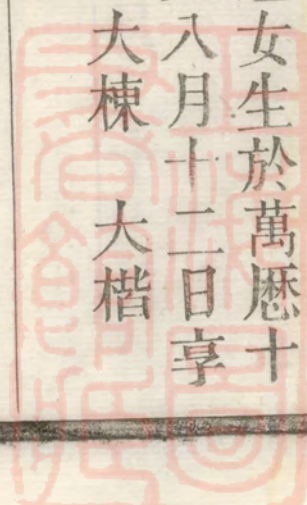 女生於萬厯十
八月十二日享
大棟　大楷